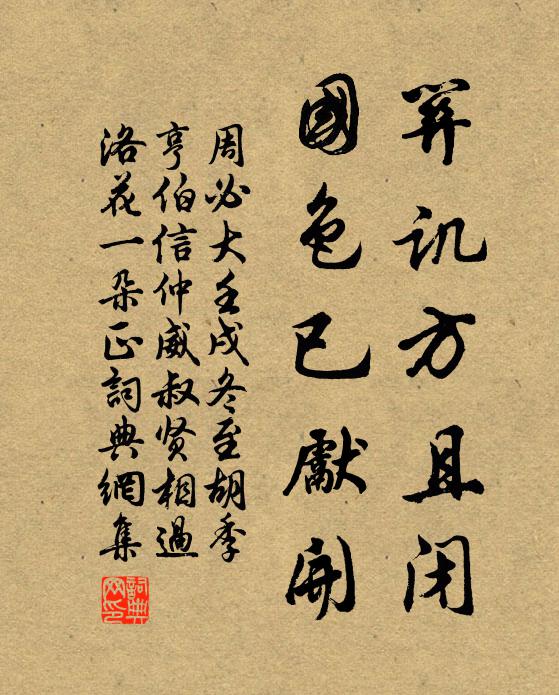 關讥方且闭
國色已獻開
周必大壬戌冬至胡季
亨伯信仲威叔贤相過
洛花一朵正詞典網集
詞典网印